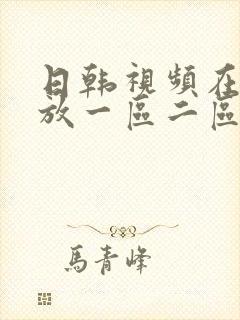 日韩視頻在
放一區二區
馬青峰